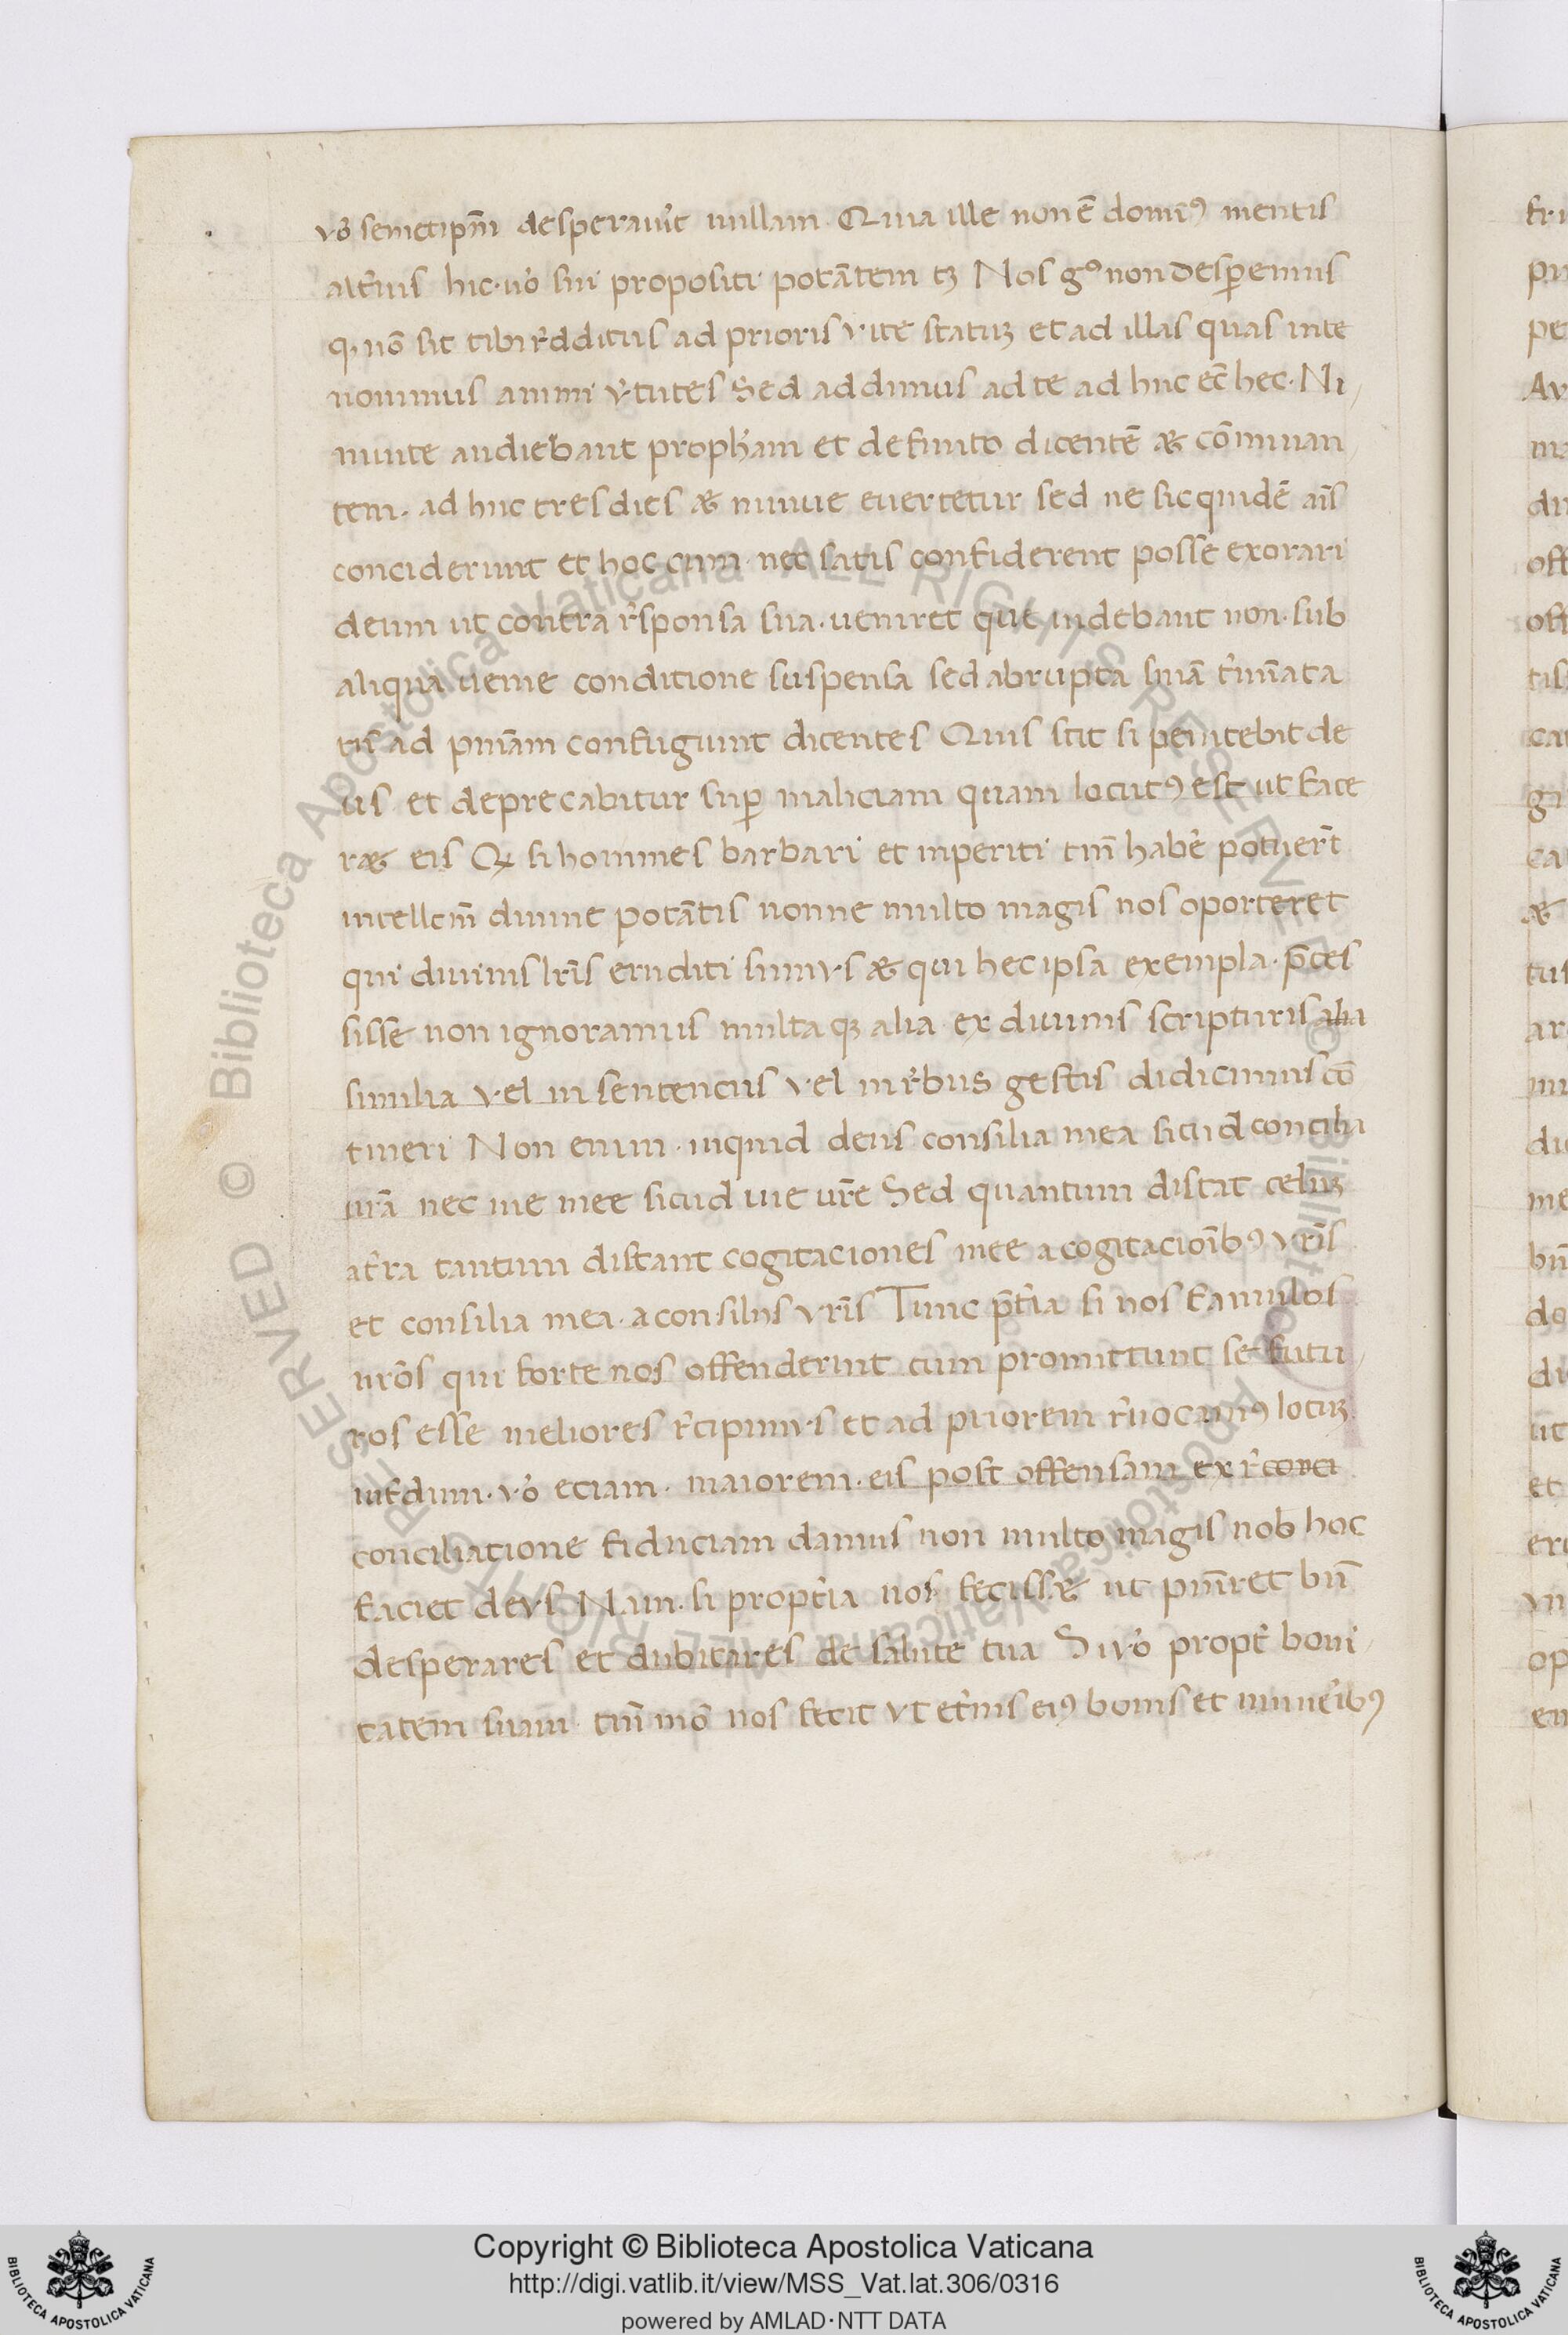 vo᷒ semetip̄m desperaūt nullam Quia ille non ē domin᷒ mentis
alt̓ius hic· uo᷒ sui propositi potātem tꝫ Nos g° non desꝑemus
ꝙ nō sit tibi r̓dditus ad prioris vite statuꝫ et ad illas quas inte
nouimus animi v̓tutes Sed addimus ad te ad huc ec̄ hec· Ni
niuite audiebant proph̓am et definito dicentē & cōminan
tem· ad huc tres dies & niniue euertetur sed ne sic quidē ais̄
conciderunt et hoc cum· nec satis confiderent posse exorari
deum ut contra r̓sponsa sua· ueniret que uidebant non· sub
aliqua uenie conditione suspensa sed abrupta snīa t̓mīata
tn̄ ad pn̄iam confugiunt dicentes Quis scit si penitebit de
us et deprecabitur suꝑ maliciam quam locut᷒ est ut face
r& eis Qꝫ si homines barbari et inperiti tm̄ hab̓e potuer̄t
intellcm̄ diuine potātis nonne multo magis nos oporteret
qui diuinis lr̄is eruditi sumus & qui hec ipsa exempla· p̄ces
sisse non ignoramus multaqꝫ alia ex diuinis scripturis alia
similia vel in sentenciis vel in r̓bus gestis didicimus cō
tineri Non enim· inquid deus consilia mea sicud concilia
ur̄a nec uie mee sicud uie ur̄e Sed quantum distat celuꝫ
a t̓ra tantum distant cogitaciones mee a cogitacioīb᷒ vr̄is
et consilia mea· a consiliis vr̄is Tunc p̄t̓ia si nos famulos
nr̄os qui forte nos offenderint cum promittunt se futu
ros esse meliores r̓cipimus et ad priorem r̓uocam᷒ locuꝫ
int̓dum· vo᷒ eciam· maiorem· eis post offensam ex r̓conci
conciliatione fiduciam damus non multo magis nob̄ hoc
faciet deus Nam· si propt̓ia nos feciss& ut pun̄iret bn̄
desperares et dubitares de salute tua Si vo᷒ propt̓ boni
tatem suam· tm̄ mō nos fecit vt et̓nis ei᷒ bonis et muner̓ib᷒
Copyright © Biblioteca Apostolica Vaticana
http://digi.vatlib.it/view/MSS_Vat.lat.306/0316
powered by AMLAD·NTT DATA